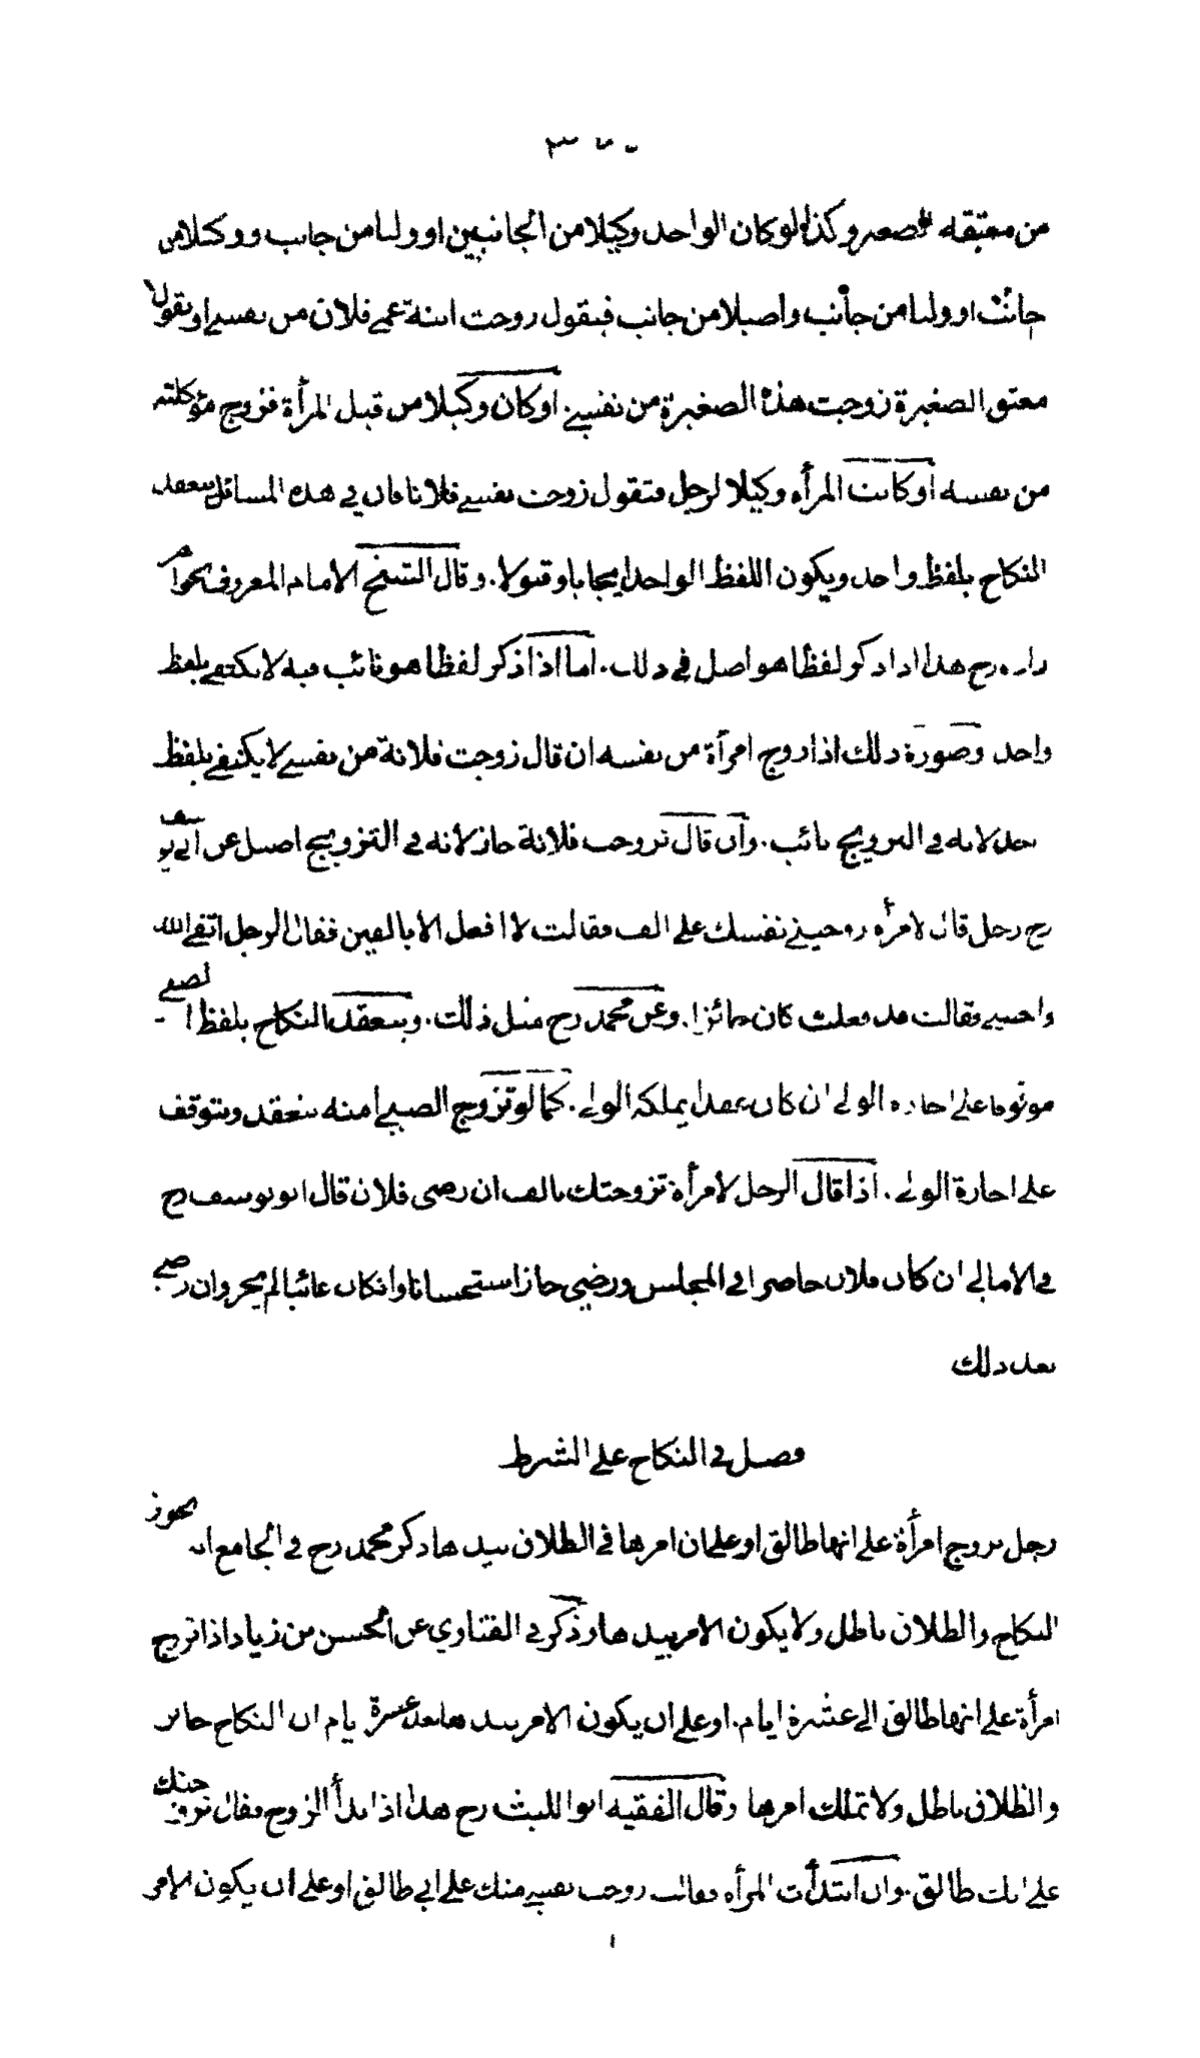 من معتقه الصغير وكذا لو كان الواحد وكيلا من الجانبين او وليا من جانب ووكيلا من
جانب او وليا من جانب واصيلا من جانب فيقول زوجت ابنة عمي فلان من نفسي او يقول
معتق الصغيرة زوجت هذه الصغيرة من نفسي اوكان وكيلا من قبل المرأة فزوج موكلته
من نفسه اوكانت المرأه وكيلا لرجل فتقول زوجت نفسي فلانا فان في هذه المسائل ينعقد
النكاح بلفظ واحد ويكون اللفظ الواحد ايجابا وقبولا. وقال الشيخ الامام المعروف بخواهر
زاده رح هذا اذا ذكر لفظا هو اصل في ذلك. اما اذا ذكر لفظا هو نائب فيه لا يكتفي بلفظ
واحد وصورة ذلك اذا زوج امرأة من نفسه ان قال زوجت فلانة من نفسي لا يكتفي بلفظ
واحد لانه في التزويج نائب. وان قال تزوجت فلانة جاز لانه في التزويج اصيل عن ابي يوسف
رح رجل قال لامرأه زوجيني نفسك على الف فقالت لا افعل الا بالفين فقال الرجل اتقي الله
واحسني فقالت قد فعلت كان جائزا. وعن محمد رح مثل ذلك. وينعقد النكاح بلفظ الصبي
موقوفا على اجازه الولي ان كان عقدا يملكه الولي. كما لو تزوج الصبي امنه ينعقد ويتوقف
على اجازة الولي. اذا قال الرجل لامرأة تزوجتك بالف ان رضي فلان قال ابو يوسف رح
في الامالي ان كان فلان حاضرا في المجلس ورضي جاز استحسانا وانكان غائبا لم يجز وان رضي
بعد ذلك
فصل في النكاح على الشرط
رجل تزوج امرأة على انها طالق او على ان امرها في الطلاق بيدها ذكر محمد رح في الجامع انه يجوز
النكاح والطلاق باطل ولا يكون الامر بيدها وذكر في الفتاوي عن الحسن من زياد اذا تزوج
امرأة على انها طالق الى عشرة ايام. او على ان يكون الامر بيدها بعد عشرة يام ان النكاح جائز
والطلاق باطل ولا تملك امرها وقال الفقيه ابو الليث رح هذا اذا بدأ الزوج فقال تزوجتك
على انك طالق. وان ابتدأت المرأه فقالت زوجت نفسي منك على اني طالق او على ان يكون الامر